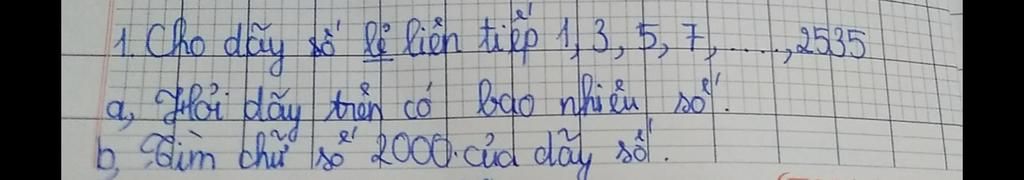 1. Cho dãy số lẻ liên tiếp 1, 3, 5, 7, ....., 2535
a, Hỏi dãy trên có bao nhiêu số.
b, Tìm chữ số 2000. của dãy số.